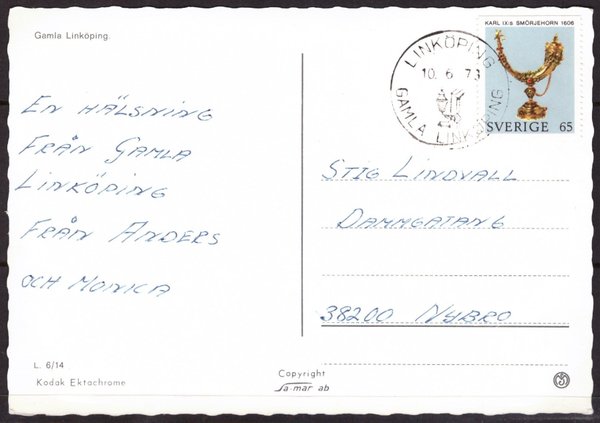 Gamla Linköping.
KARL IX:s SMÖRJEHORN 1606
SVERIGE 65
LINKÖPING
10. 6. 73
GAMLA LINKÖPING
EN HÄLSNING
FRÅN GAMLA
LINKÖPING
FRÅN ANDERS
OCH MONICA
STIG LINDVALL
DAMMGATAN 6
38200 NYBRO
L. 6/14
Kodak Ektachrome
Copyright
Sa mar ab